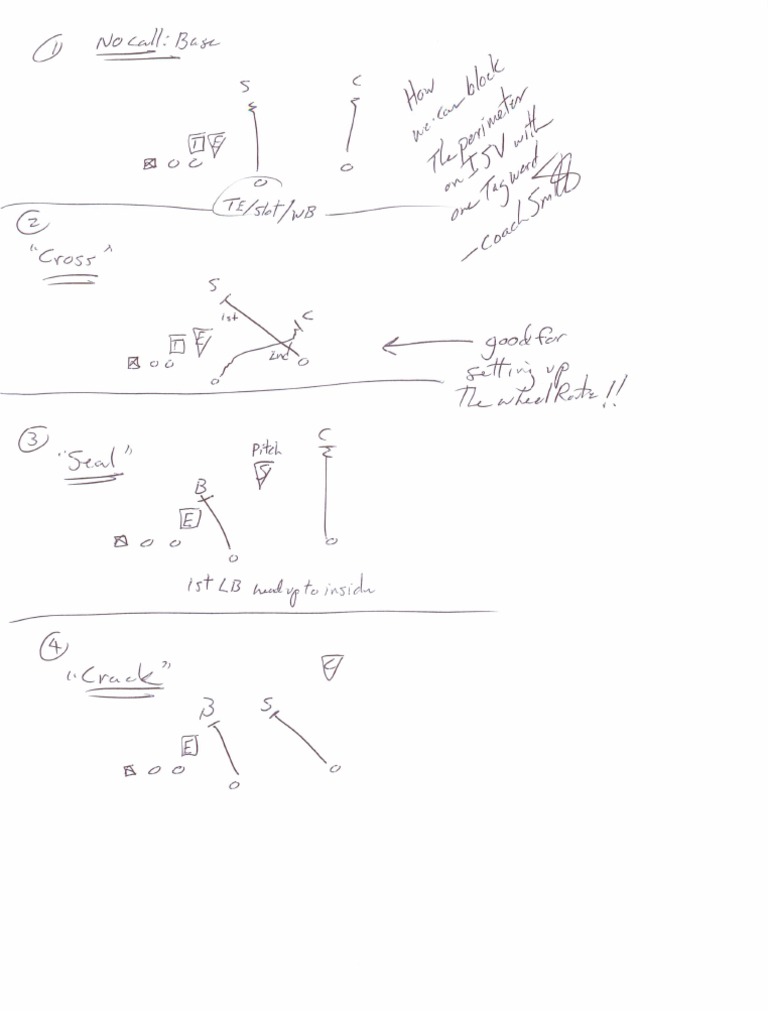 1 No call: Base
S C
T E
TE/slot/WB
How
we can block
The perimeter
on ISV with
one Tag word
- Coach Smith
2
"Cross"
S
1st C
T E
2nd
good for
setting up
The wheel Route!!
3
"Seal"
Pitch C
S
B
E
1st LB head up to inside
4
"Crack"
C
B S
E